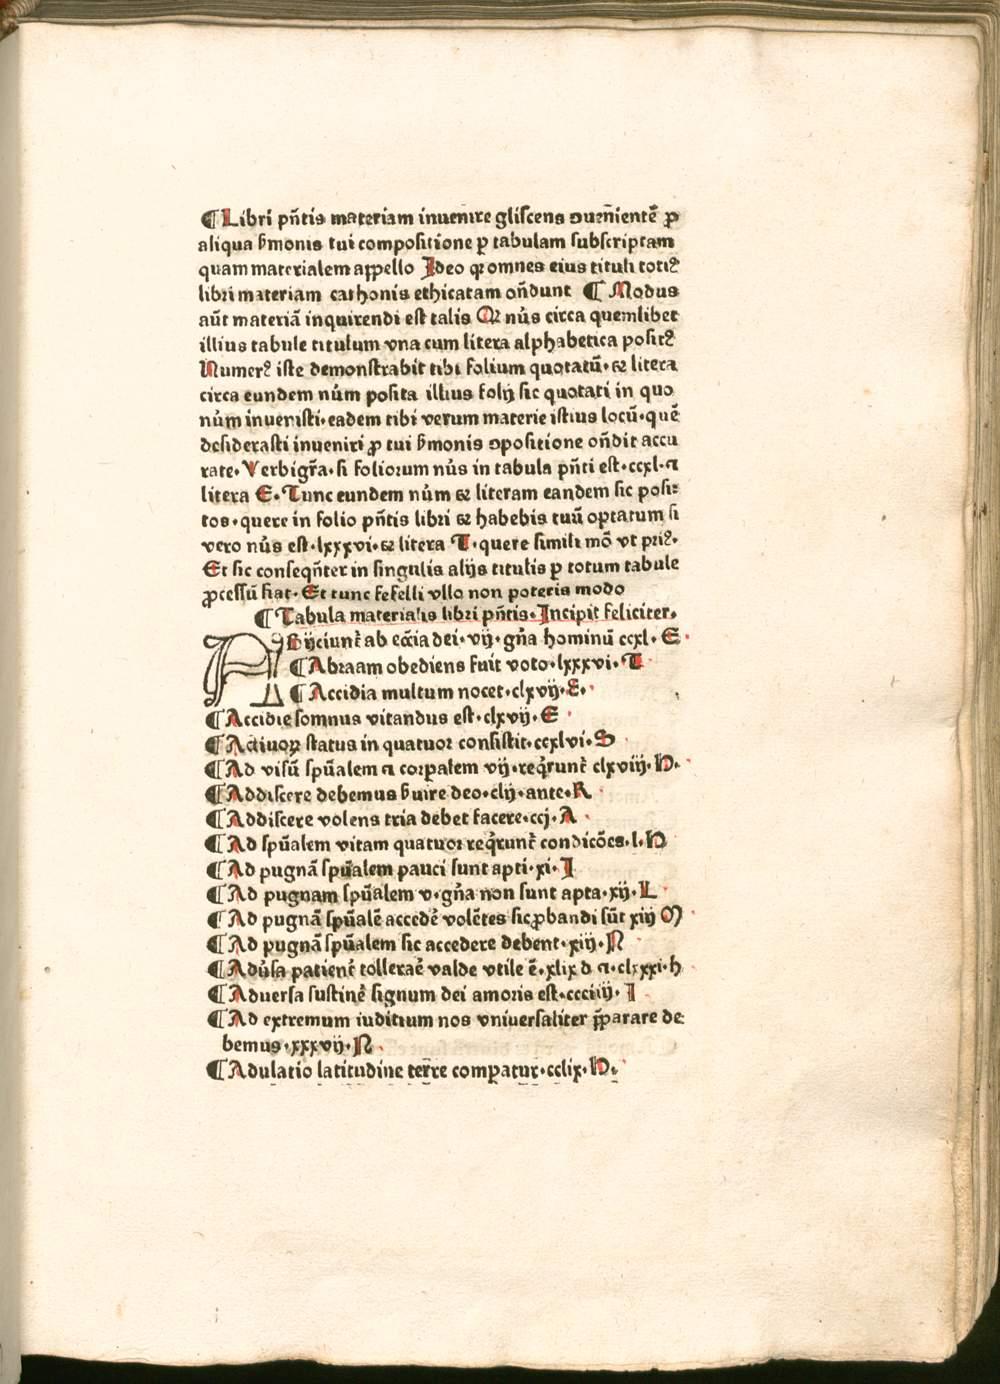 ¶ Libri pñtis materiam inuenire gliscens ꝯueñientẽ ꝓ
aliqua ẜmonis tui compositione ꝑ tabulam subscriptam
quam materialem appello Ideo qꝛ omnes eius tituli totiꝰ
libri materiam cathonis ethicatam oñdunt ¶ Modus
aũt materiã inquirendi est talis Qꝛ nũs circa quemlibet
illius tabule titulum vna cum litera alphabetica positꝰ
Numerꝰ iste demonstrabit tibi folium quotatũ· ⁊ litera
circa eundem nũm posita illius folij sic quotati in quo
nũm inuenisti·eadem tibi verum materie istius locũ·quẽ
desiderasti inueniri ꝓ tui ẜmonis ꝯpositione oñdit accu
rate· Verbigr̃a·si foliorum nũs in tabula pñti est·ccxl·a
litera E·Tunc eundem nũm ⁊ literam eandem sic posi⸗
tos·quere in folio pñtis libri ⁊ habebis tuũ optatum si
vero nũs est·lxxxvi·⁊ litera T·quere simili mõ vt priꝰ·
Et sic conseqñter in singulis alijs titulis ꝑ totum tabule
ꝓcessũ fiat·Et tunc fefelli vllo non poteris modo
¶ Tabula materialis libri pñtis·Incipit feliciter·
ABijciunt᷑ ab ecc̃ia dei·vij·gña hominũ ccxl·E·
¶ Abraam obediens fuit voto·lxxxvi·T
¶ Accidia multum nocet·clxvij·E·
¶ Accidie somnus vitandus est·clxvij·E
¶ Actiuoꝝ status in quatuor consistit·ccxlvi·S
¶ Ad visũ spũalem a corꝑalem vij·reqͥrunt᷑ clxviij·D·
¶ Addiscere debemus ẜuire deo·clij·ante·R
¶ Addiscere volens tria debet facere·ccj·A
¶ Ad spũalem vitam quatuor reqͥrunt᷑ condicões·l·D
¶ Ad pugnã spũalem pauci sunt apti·xi·I
¶ Ad pugnam spũalem v·gña non sunt apta·xij·L
¶ Ad pugnã spũalẽ accedẽ volẽtes sic ꝓbandi sũt xiij M
¶ Ad pugnã spũalem sic accedere debent·xiij·N
¶ Adũsa patient᷑ tolleraẽ valde vtile ẽ·xlix d a·clxxxi·h
¶ Aduersa sustinẽ signum dei amoris est·ccciiij·I
¶ Ad extremum iuditium nos vniuersaliter p̃parare de⸗
bemus·xxxvij·N
¶ Adulatio latitudine terre comꝑatur·cclix·D·